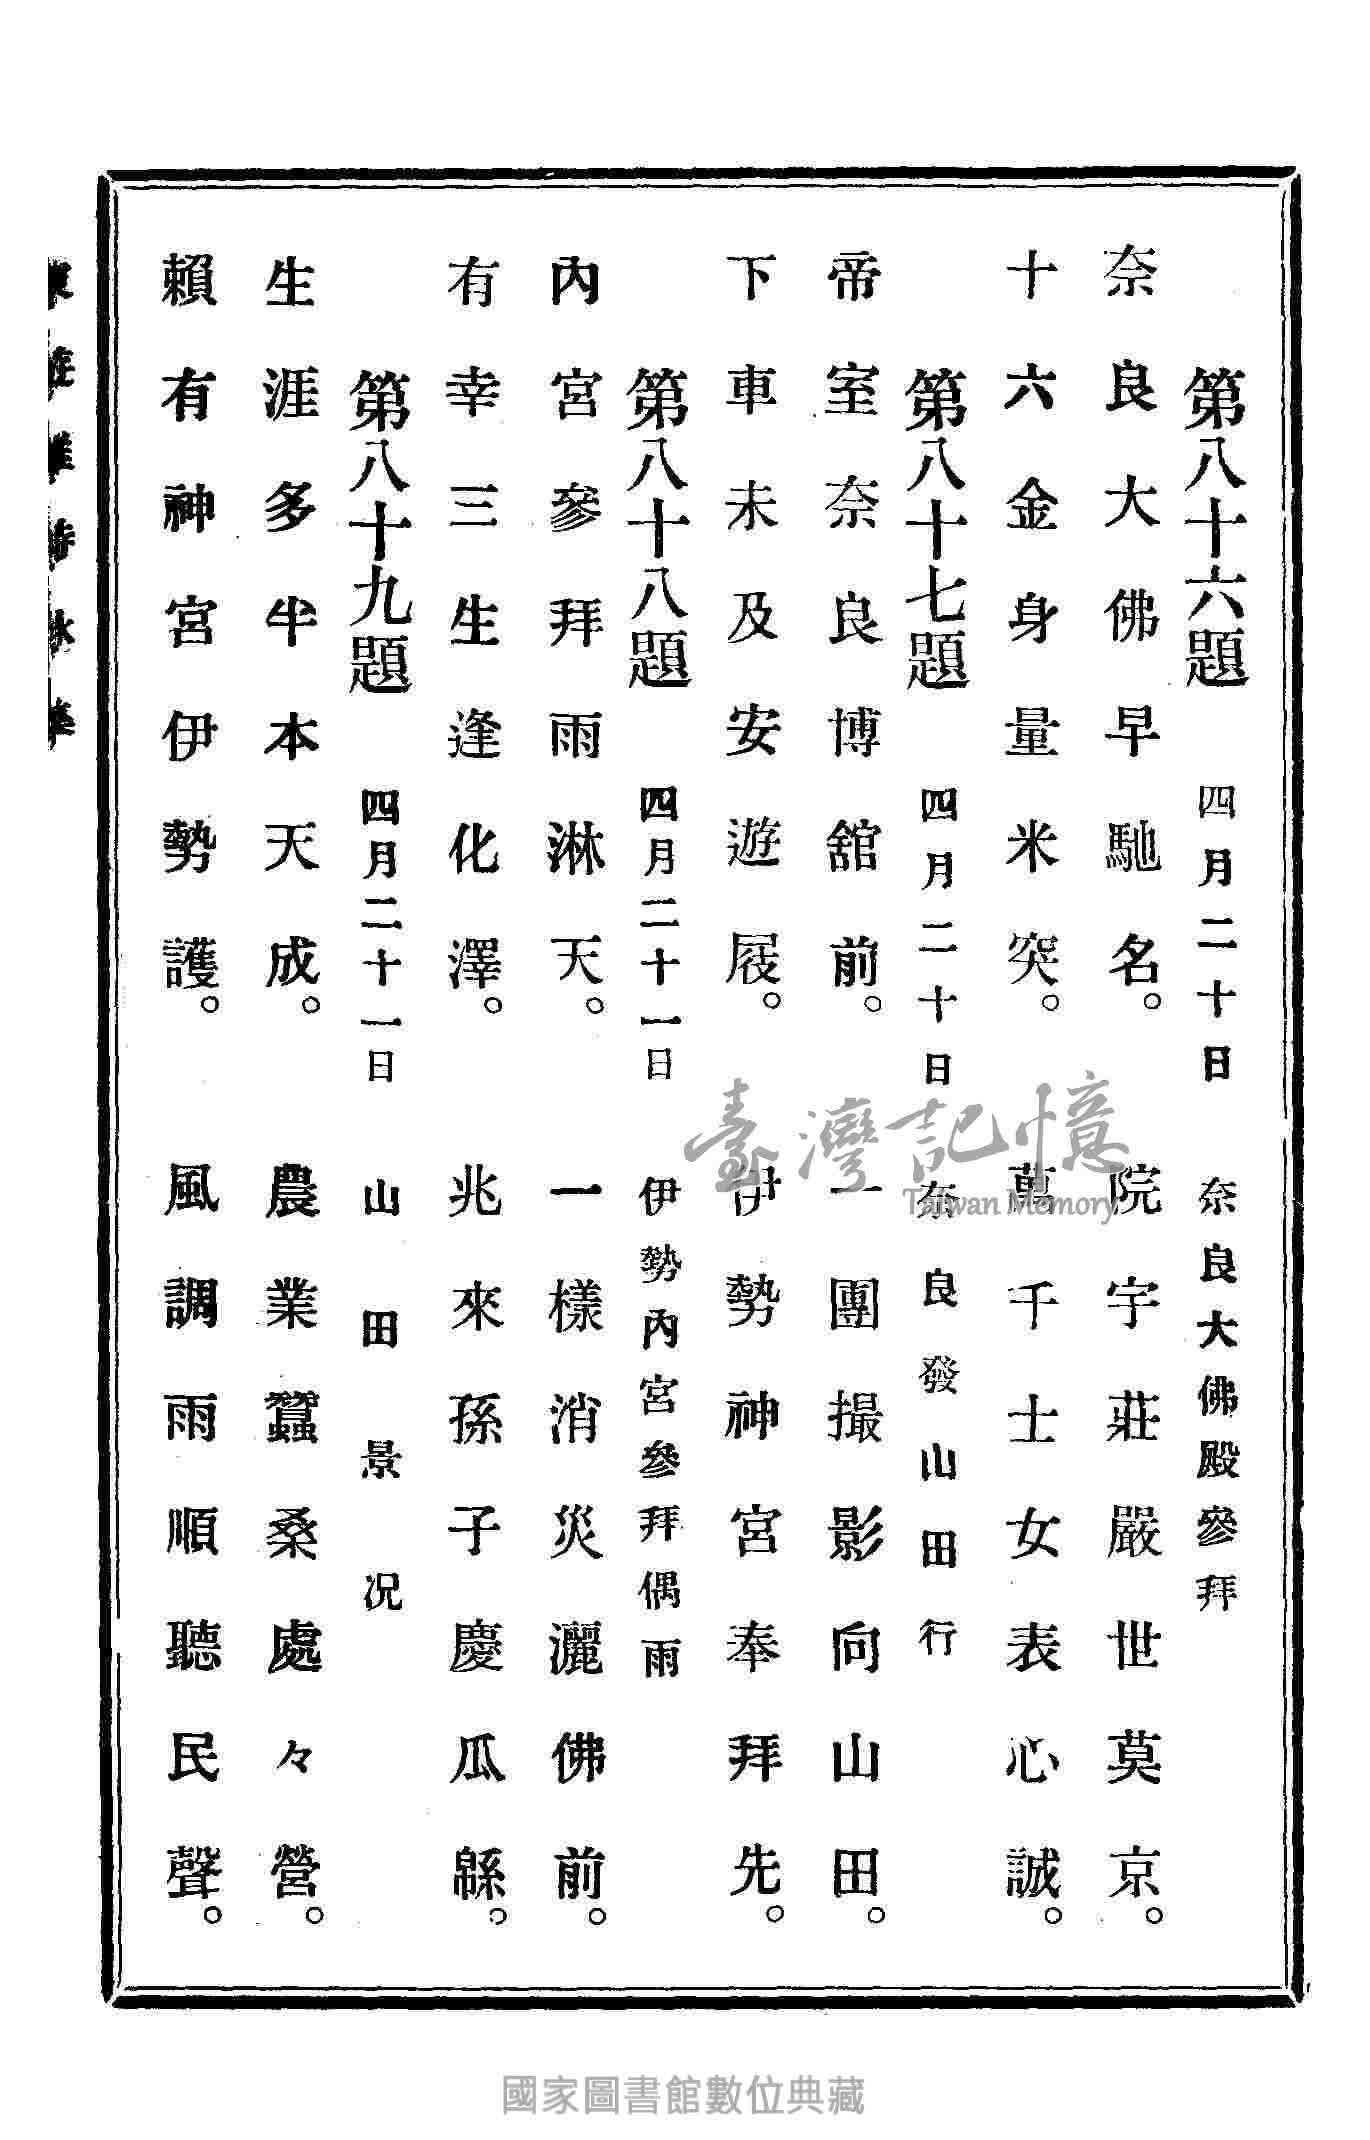 第八十六題 四月二十日 奈良大佛殿參拜
奈良大佛早馳名。 院宇莊嚴世莫京。
十六金身量米突。 萬千士女表心誠。
第八十七題 四月二十日 奈良發山田行
帝室奈良博舘前。 一團撮影向山田。
下車未及安遊屐。 伊勢神宮奉拜先。
第八十八題 四月二十一日 伊勢內宮參拜偶雨
內宮參拜雨淋天。 一樣消災灑佛前。
有幸三生逢化澤。 兆來孫子慶瓜緜。
第八十九題 四月二十一日 山田景況
生涯多半本天成。 農業蠶桑處々營。
賴有神宮伊勢護。 風調雨順聽民聲。
臺灣記憶
Taiwan Memory
國家圖書館數位典藏